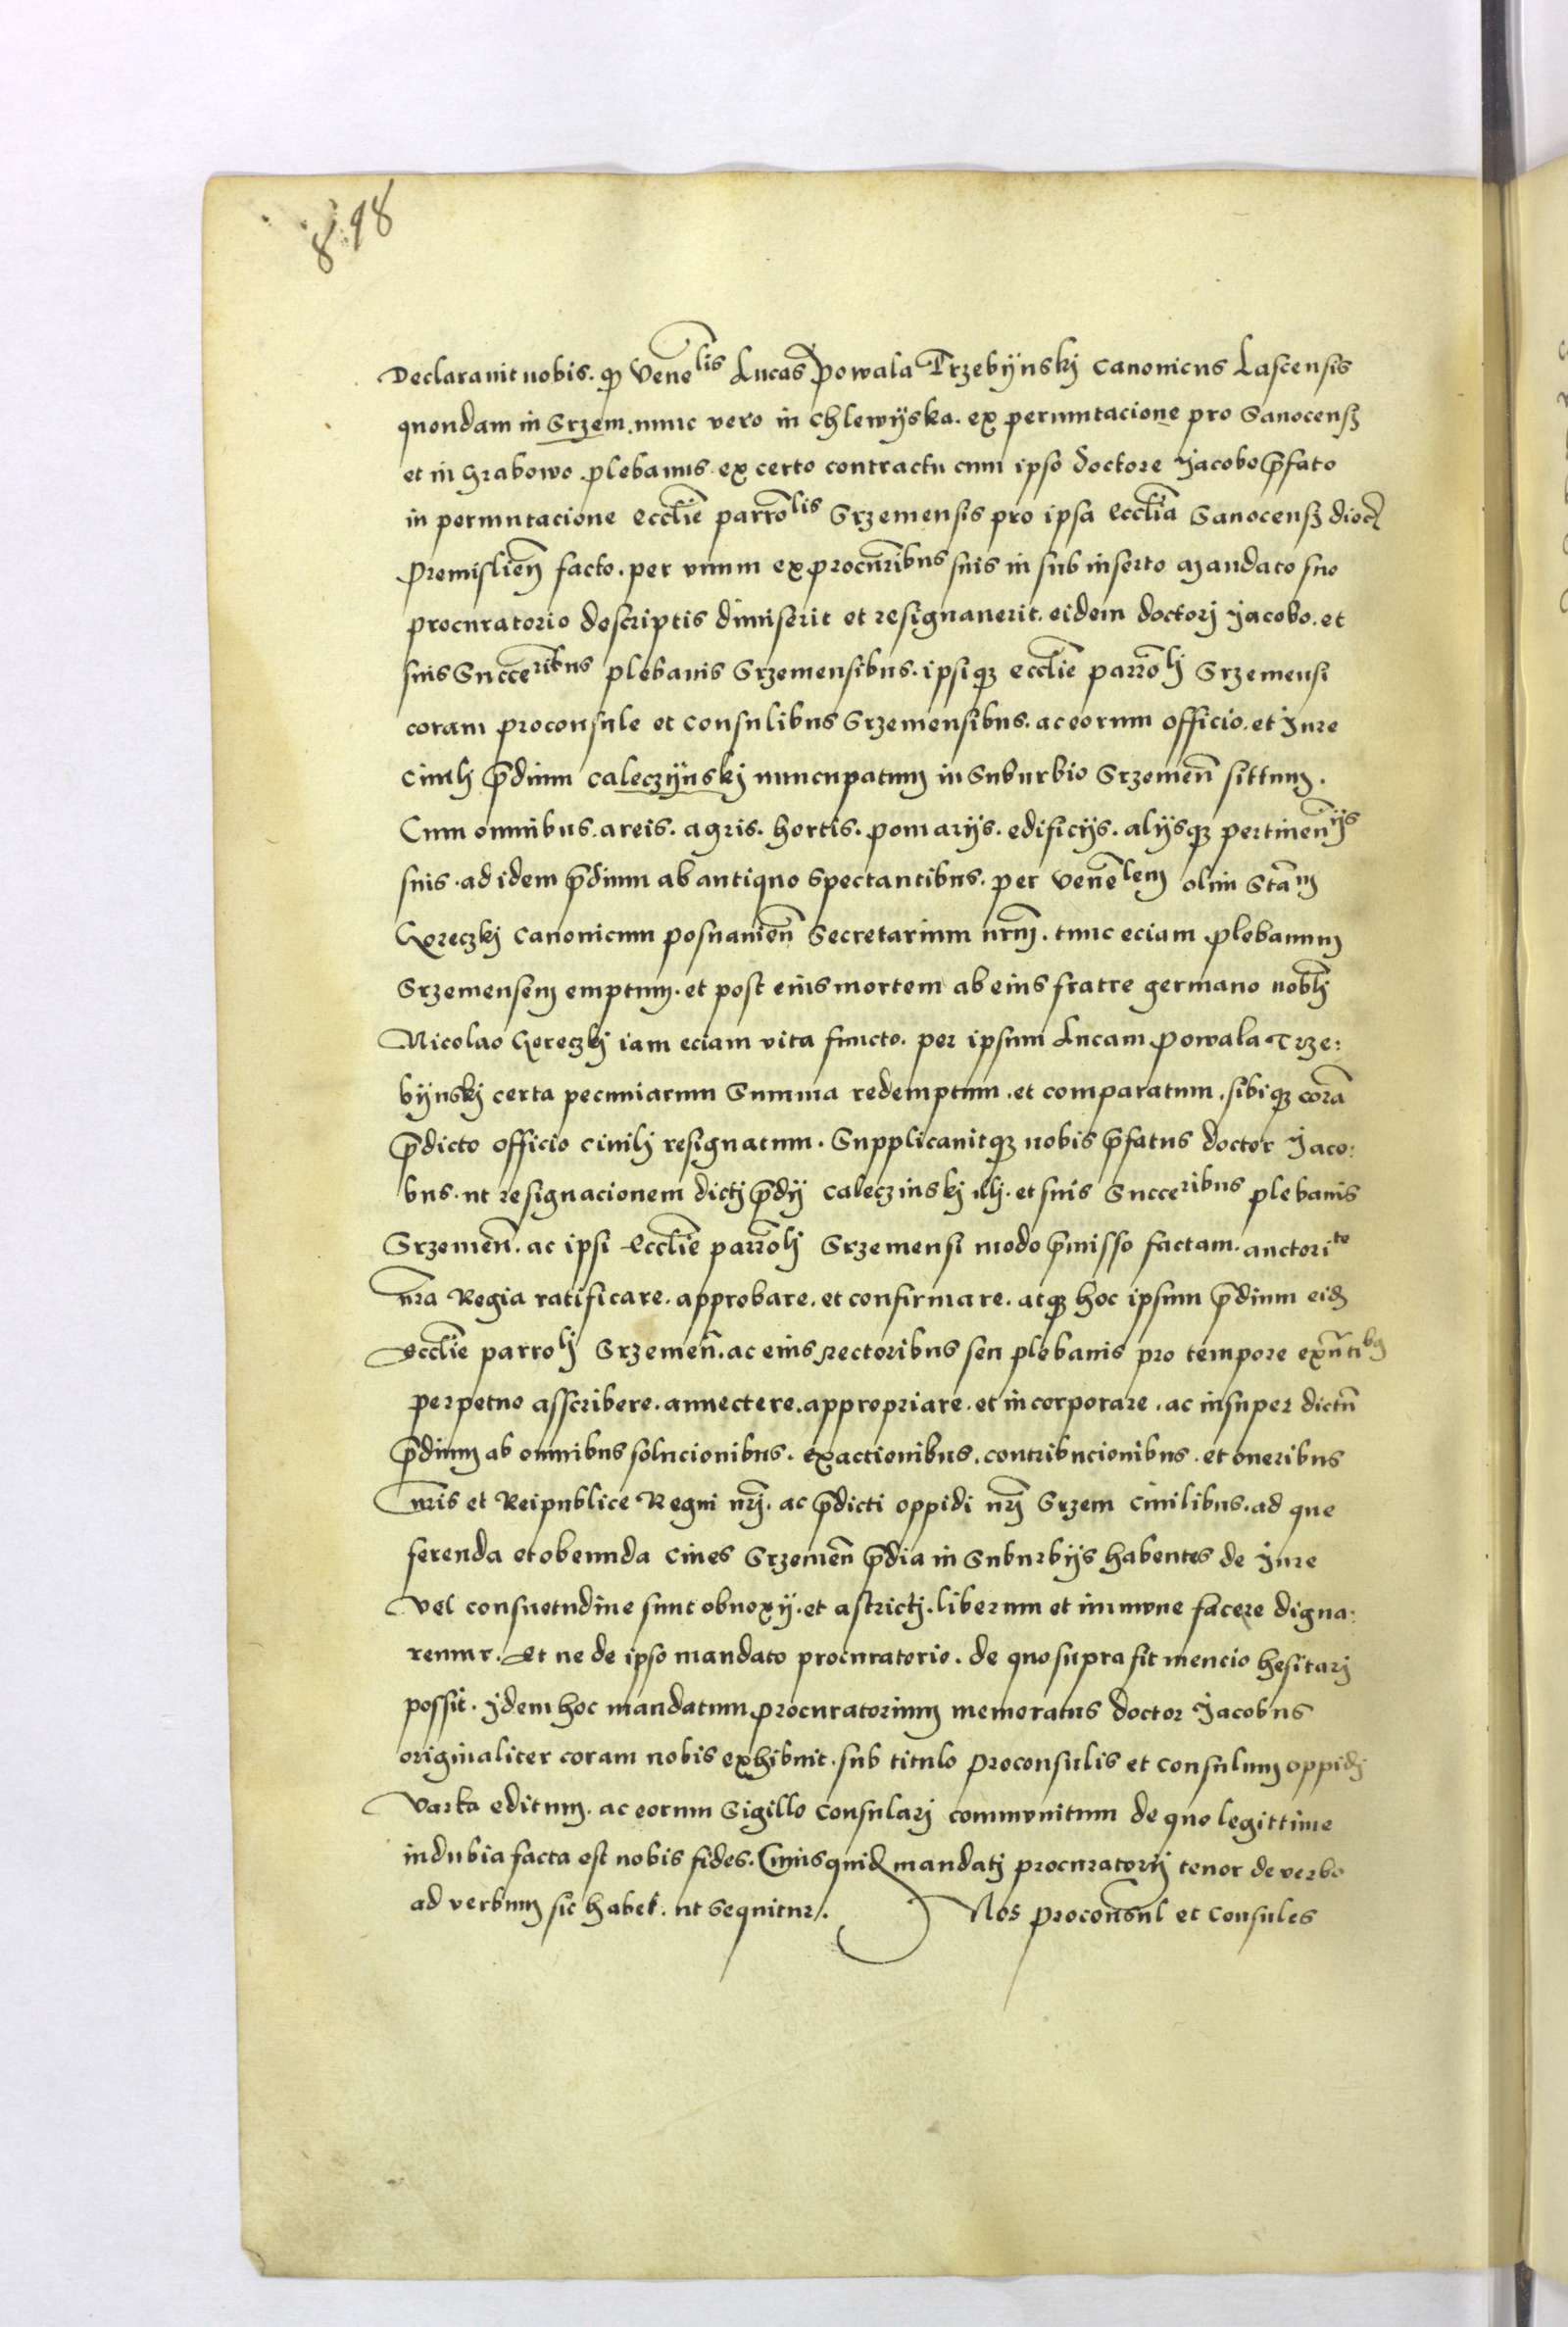 8.98
Declarauit nobis. qȝ Venēlis Lucas Powala Trzebijnskj Canonicus Lascensis
quondam in Srzem. nunc vero in Chlewijska. ex permutacione pro Sanocensȝ
et in Grabowo plebanus. ex certo contractu cum ipso doctore Jacobo p̄fato
in permutacione eccl̄ie parrōlis Srzemensis pro ipsa eccl̄ia Sanocensȝ dioc̄
Premislien̄ facto. per vnum ex procur̄ibus suis in sub inserto Mandato suo
procuratorio descriptis dimiserit et resignauerit. eidem doctorj Jacobo. et
suis Succeribus plebanis Srzemensibus. ipsiqȝ eccl̄ie parrōlj Srzemensi
coram proconsule et consulibus Srzemensibus. ac eorum officio. et Jure
ciuilj p̄dium caleczijnskj nuncupatum in Suburbio Srzemen̄ sittum.
Cum omnibus. areis. agris. hortis. pomarijs. edificijs. alijsqȝ pertinen̄ijs
suis. ad idem p̄dium ab antiquo Spectantibus. per Venēlem olim Stām
Goreczkj Canonicum posnanien̄ Secretarium nr̄m. tunc eciam plebanum
Srzemensem emptum. et post eius mortem ab eius fratre germano nobl̄j
Nicolao Goreczkj iam eciam vita functo. per ipsum Lucam Powala Trze:
bijnskj certa pecuniarum Summa redemptum. et comparatum. sibiqȝ corā
p̄dicto officio ciuilj resignatum. Supplicauitqȝ nobis p̄fatus doctor Jaco:
bus. ut resignacionem dictj p̄dij Caleczinskj illj. et suis Succeribus plebanis
Srzemen̄. ac ipsi Eccl̄ie parrōlj Srzemensi modo p̄misso factam. auctorite
nr̄a Regia ratificare. approbare. et confirmare. atqȝ hoc ipsum p̄dium eidȝ
Eccl̄ie parrolj Srzemen̄. ac eius rectoribus seu plebanis pro tempore exn̄tibȝ
perpetuo asscribere. annectere. appropriare. et incorporare. ac insuper dictū
p̄dium ab omnibus solucionibus. exactionibus. contribucionibus. et oneribus
nr̄is et Reipublice Regni nr̄j. ac p̄dicti oppidi nr̄j Srzem ciuilibus. ad que
ferenda et obeunda ciues Srzemen̄ p̄dia in Suburbijs habentes de Jure
Vel consuetudine sunt obnoxij. et astrictj. liberum et immune facere digna:
remur. Et ne de ipso mandato procuratorio. de quo supra fit mencio hesitarj
possit. Jdem hoc mandatum procuratorium memoratus doctor Jacobus
originaliter coram nobis exhibuit. sub titulo proconsulis et consulum oppidj
Varka editum. ac eorum Sigillo Consularj communitum de quo legittime
indubia facta est nobis fides. Cuius quidȝ mandatj procuratorij tenor de verbo
ad verbum sic habet. ut sequitur/. Nos proconsul et Consules